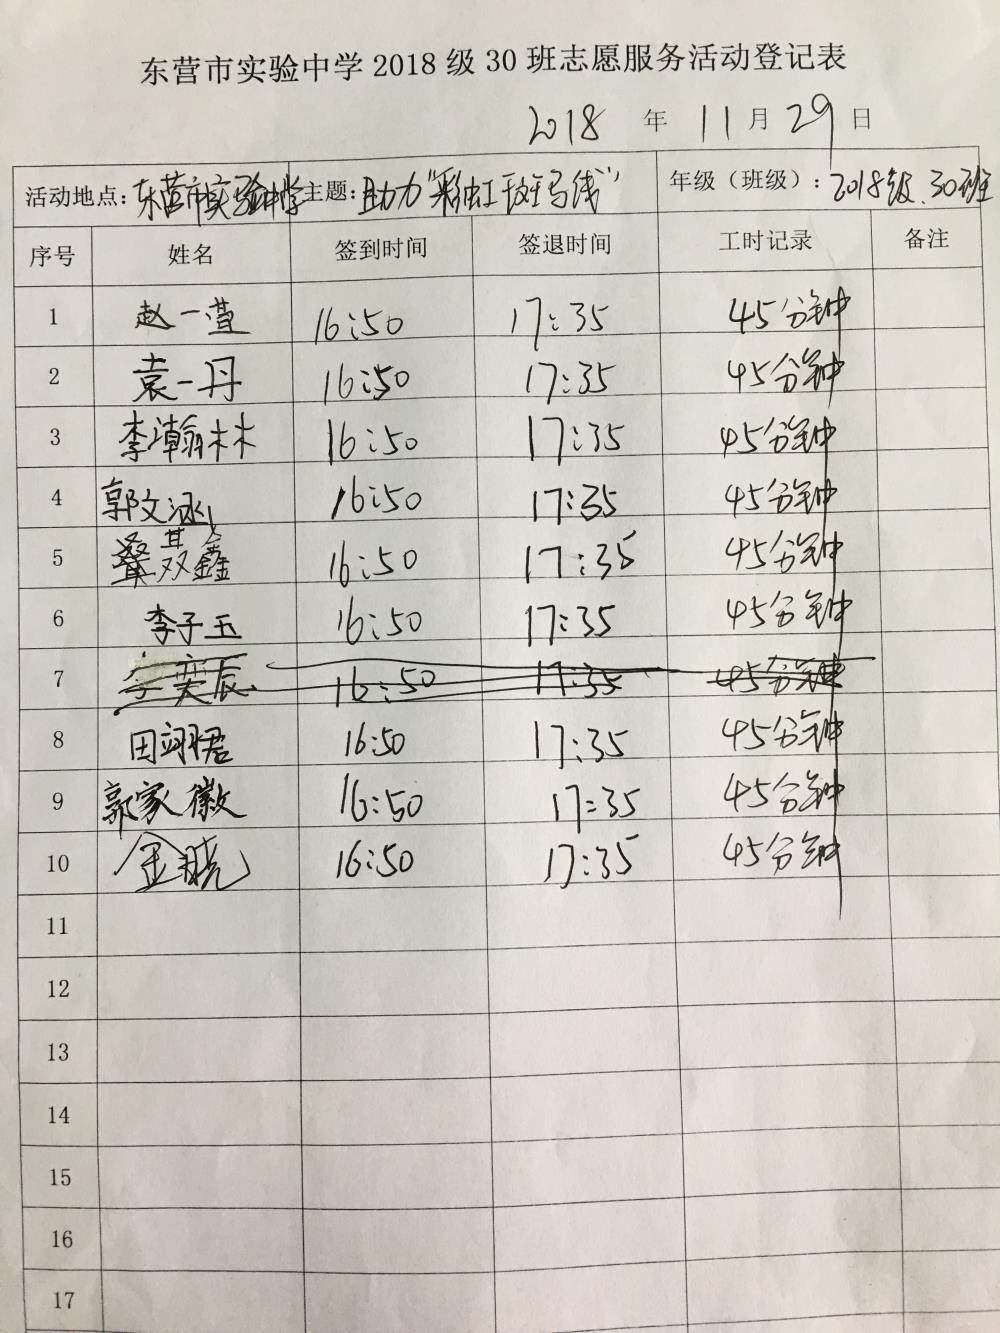 东营市实验中学2018级30班志愿服务活动登记表
2018 年 11月29日
活动地点：东营市实验中学 主题：助力“彩虹斑马线” 年级（班级）：2018级.30班
序号 姓名 签到时间 签退时间 工时记录 备注
1 赵一萱 16:50 17:35 45分钟
2 袁一丹 16:50 17:35 45分钟
3 李瀚林 16:50 17:35 45分钟
4 郭文涵 16:50 17:35 45分钟
5 双鑫 16:50 17:35 45分钟
6 李子玉 16:50 17:35 45分钟
7 李奕辰 16:50 17:35 45分钟
8 田翊君 16:50 17:35 45分钟
9 郭家徽 16:50 17:35 45分钟
10 金晓 16:50 17:35 45分钟
11
12
13
14
15
16
17